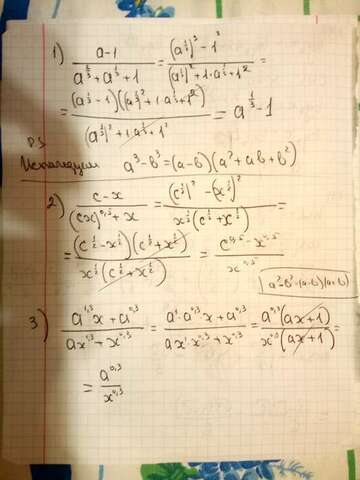 1) (a-1)/(a^(2/3)+a^(1/3)+1) = ((a^(1/3))^3-1^3)/((a^(1/3))^2+1·a^(1/3)+1^2) =
= ((a^(1/3)-1)((a^(1/3))^2+1·a^(1/3)+1^2))/((a^(1/3))^2+1·a^(1/3)+1^2) = a^(1/3)-1
P.S
Используем a^3-b^3=(a-b)(a^2+ab+b^2)
2) (c-x)/((cx)^(0,5)+x) = ((c^(1/2))^2-(x^(1/2))^2)/(x^(1/2)(c^(1/2)+x^(1/2))) =
= ((c^(1/2)-x^(1/2))(c^(1/2)+x^(1/2)))/(x^(1/2)(c^(1/2)+x^(1/2))) = (c^(0,5)-x^(0,5))/x^(0,5)
a^2-b^2=(a-b)(a+b)
3) (a^(1,3)x+a^(0,3))/(ax^(1,3)+x^(0,3)) = (a^1·a^(0,3)x+a^(0,3))/(ax^1·x^(0,3)+x^(0,3)) = (a^(0,3)(ax+1))/(x^(0,3)(ax+1)) =
= a^(0,3)/x^(0,3)